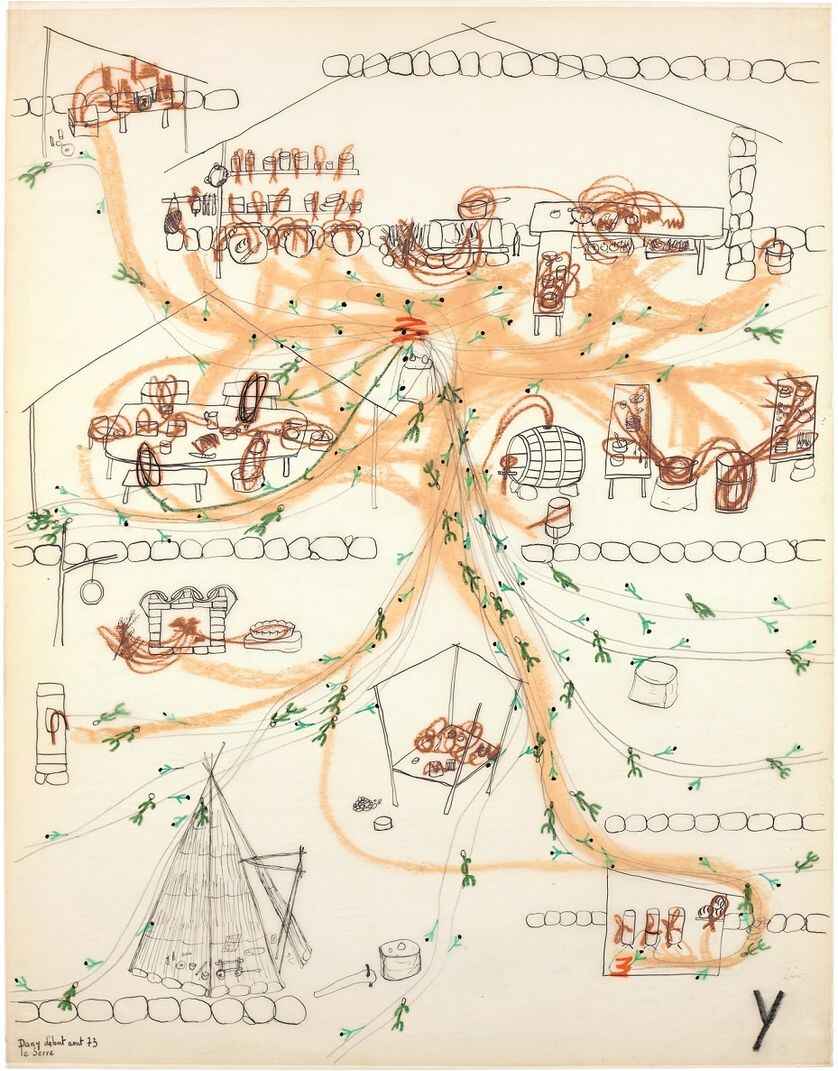 Y
Dany début aout 73
le Serre